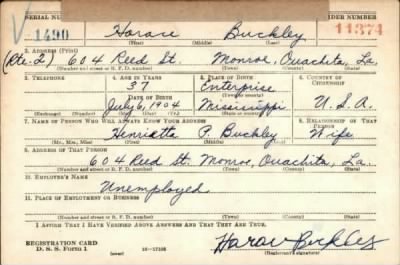 SERIAL NUMBER ORDER NUMBER
V 1490 Horace Buckley 11374
(First) (Middle) (Last)
2. ADDRESS (Print)
(Rte. 2) 604 Reed St. Monroe, Ouachita, La.
(Number and street or R. F. D. number) (Town) (County) (State)
3. TELEPHONE 4. AGE IN YEARS 5. PLACE OF BIRTH 6. COUNTRY OF CITIZENSHIP
37 Enterprise
DATE OF BIRTH (Town or county)
July 6, 1904 Mississippi U.S.A.
(Exchange) (Number) (Mo.) (Day) (Yr.) (State or country)
7. NAME OF PERSON WHO WILL ALWAYS KNOW YOUR ADDRESS 8. RELATIONSHIP OF THAT PERSON
Henrietta P. Buckley Wife
(Mr., Mrs., Miss) (First) (Middle) (Last)
9. ADDRESS OF THAT PERSON
604 Reed St. Monroe, Ouachita, La.
(Number and street or R. F. D. number) (Town) (County) (State)
10. EMPLOYER'S NAME
Unemployed
11. PLACE OF EMPLOYMENT OR BUSINESS
(Number and street or R. F. D. number) (Town) (County) (State)
I AFFIRM THAT I HAVE VERIFIED ABOVE ANSWERS AND THAT THEY ARE TRUE.
REGISTRATION CARD
D. S. S. Form 1 (over) Horace Buckley
(Registrant's signature)